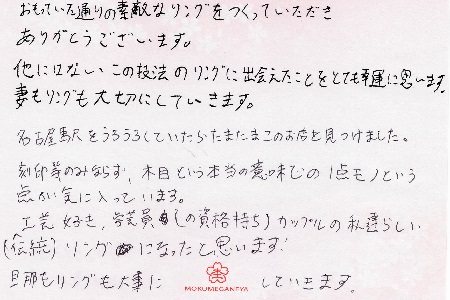 おもっていた通りの素敵なリングをつくっていただき
ありがとうございます。
他にはない この技法のリングに出会えたことをとても幸運に思います。
妻もリングも大切にしていきます。
名古屋駅をうろうろしていたらたまたまこのお店を見つけました。
刻印等のみならず、木目という本当の意味での1点モノという
点が気に入っています。
工芸好き、学芸員(の資格持ち)カップルの私達らしい
(伝統)リングになったと思います!
旦那もリングも大事に していきます。
MOKUMEGANEYA